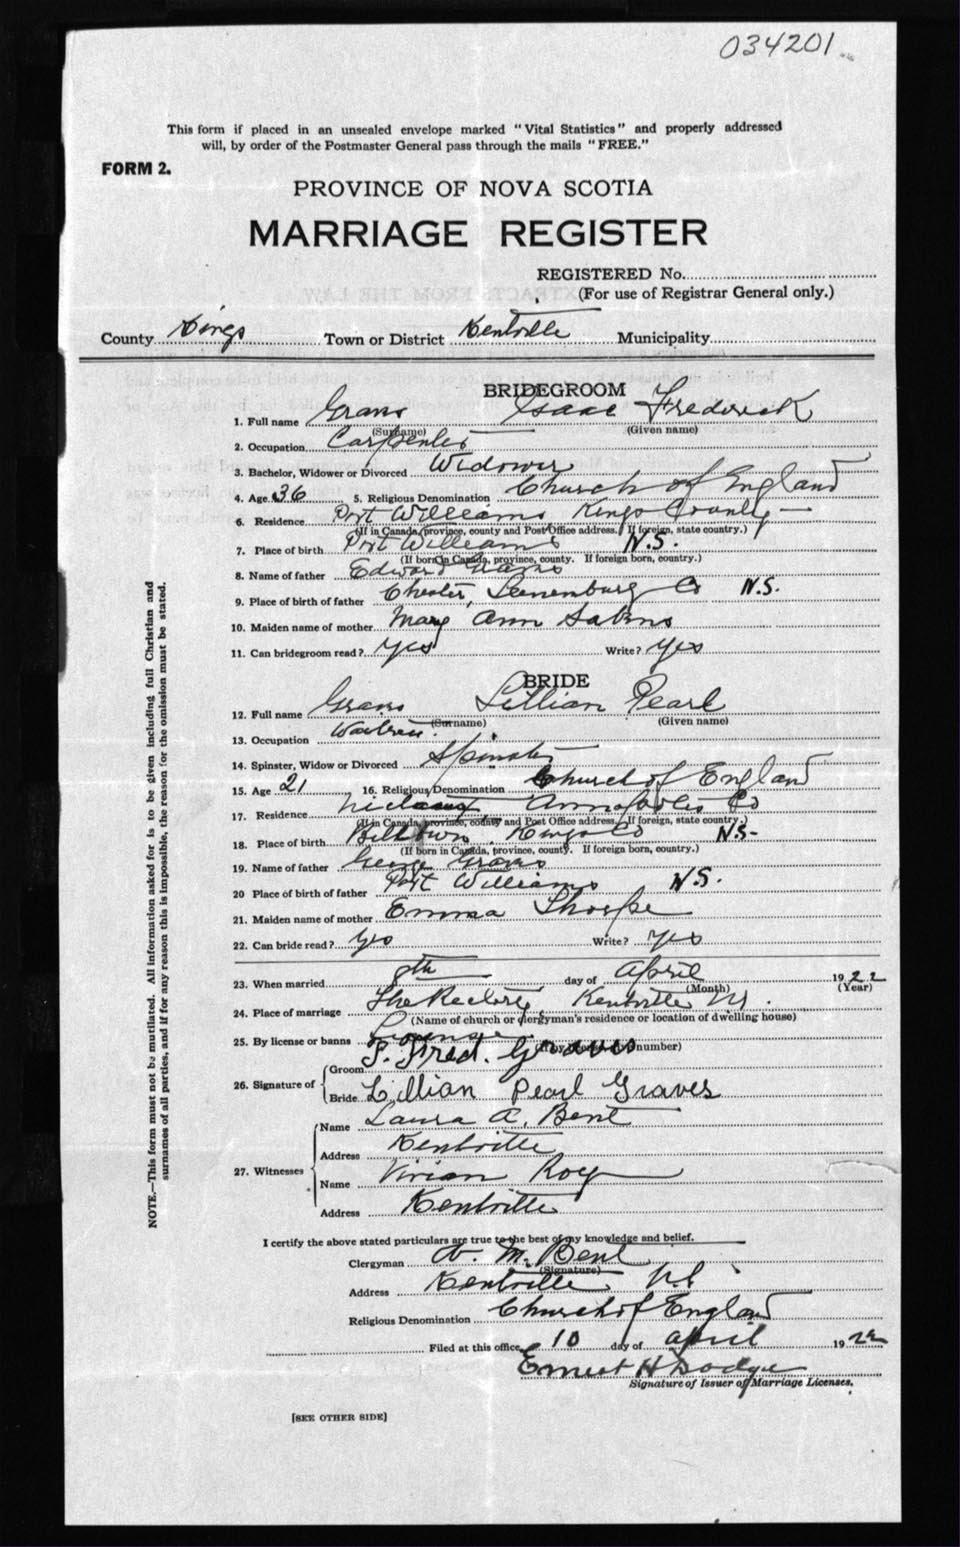 034201
This form if placed in an unsealed envelope marked "Vital Statistics" and properly addressed
will, by order of the Postmaster General pass through the mails "FREE."
FORM 2.
PROVINCE OF NOVA SCOTIA
MARRIAGE REGISTER
REGISTERED No.
(For use of Registrar General only.)
County Kings Town or District Kentville Municipality
BRIDEGROOM
1. Full name Graves Isaac Frederick
(Surname) (Given name)
2. Occupation Carpenter
3. Bachelor, Widower or Divorced Widower
4. Age 36 5. Religious Denomination Church of England
6. Residence Port Williams Kings County
(If in Canada, province, county and Post Office address. If foreign, state country.)
7. Place of birth Port Williams N.S.
(If born in Canada, province, county. If foreign born, country.)
8. Name of father Edward Graves
9. Place of birth of father Chester, Lunenburg Co N.S.
10. Maiden name of mother Mary Ann
11. Can bridegroom read? Yes Write? Yes
BRIDE
12. Full name Graves Lillian Pearl
(Surname) (Given name)
13. Occupation Waitress
14. Spinster, Widow or Divorced Spinster
15. Age 21 16. Religious Denomination Church of England
17. Residence Nictaux Annapolis Co
(If in Canada, province, county and Post Office address. If foreign, state country.)
18. Place of birth Billtown Kings Co N.S.
(If born in Canada, province, county. If foreign born, country.)
19. Name of father George Graves
20 Place of birth of father Port Williams N.S.
21. Maiden name of mother Emma Thorpe
22. Can bride read? Yes Write? Yes
23. When married 8th day of April 1922
(Month) (Year)
24. Place of marriage The Rectory Kentville NS.
(Name of church or clergyman's residence or location of dwelling house)
25. By license or banns License
26. Signature of Groom I. Fred. Graves
Bride Lillian Pearl Graves
27. Witnesses Name Laura A. Bent
Address Kentville
Name Vivian Roy
Address Kentville
I certify the above stated particulars are true to the best of my knowledge and belief.
Clergyman A. M. Bent
(Signature)
Address Kentville N.S.
Religious Denomination Church of England
Filed at this office 10 day of April 1922
Ernest H Dodge
Signature of Issuer of Marriage Licenses.
[SEE OTHER SIDE]
NOTE.—This form must not be mutilated. All information asked for is to be given including full Christian and
surnames of all parties, and if for any reason this is impossible, the reason for the omission must be stated.